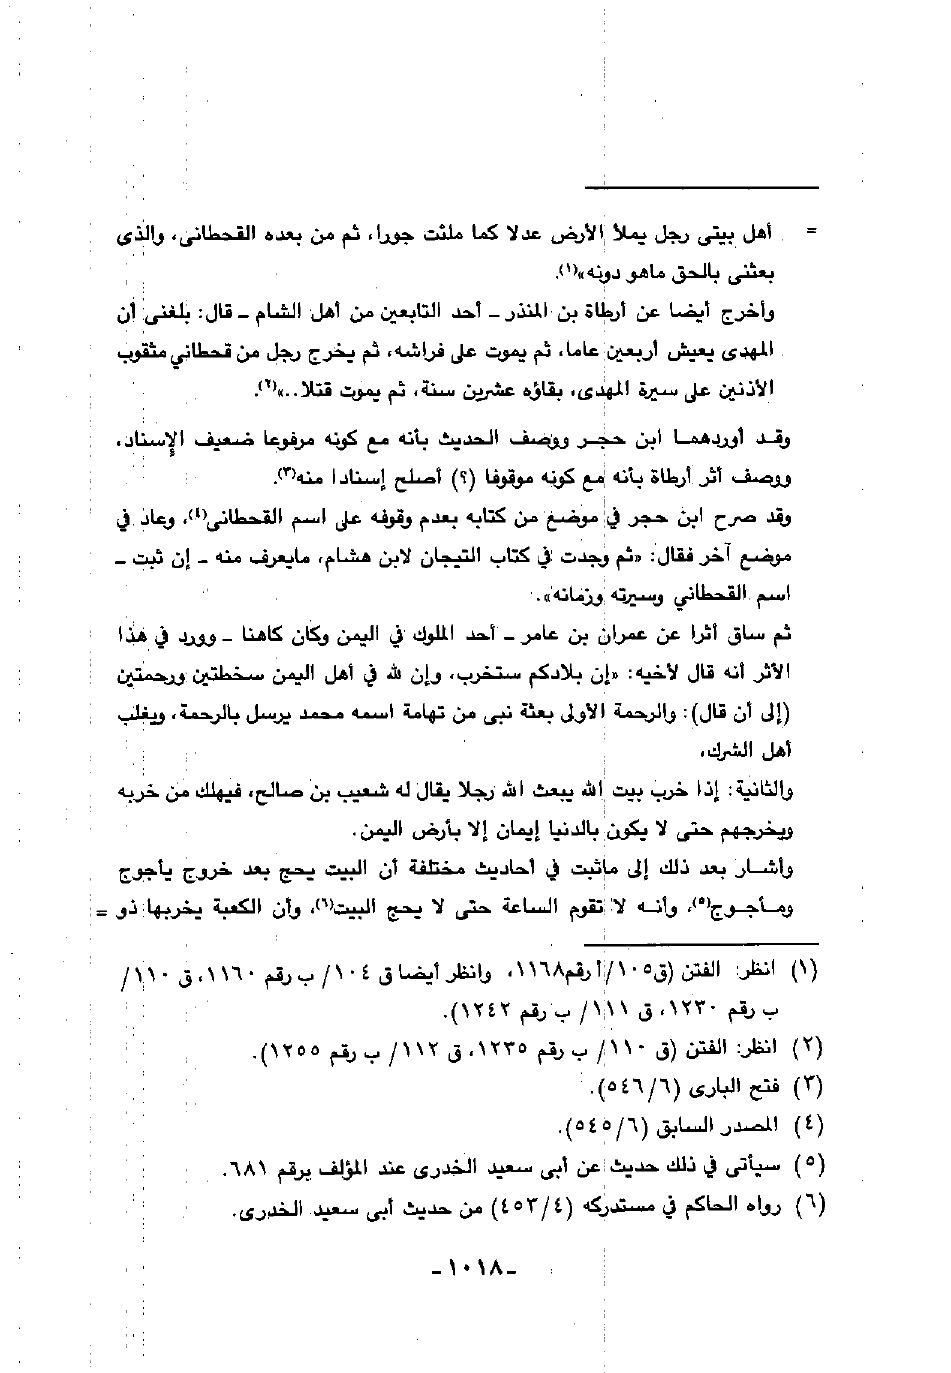 = أهل بيتى رجل يملأ الأرض عدلا كما ملئت جورا، ثم من بعده القحطانى، والذى
بعثنى بالحق ماهو دونه»(١).
وأخرج أيضا عن أرطاة بن المنذر ـ أحد التابعين من أهل الشام ـ قال: بلغنى أن
المهدى يعيش أربعين عاما، ثم يموت على فراشه، ثم يخرج رجل من قحطاني مثقوب
الأذنين على سيرة المهدى، بقاؤه عشرين سنة، ثم يموت قتلا..»(٢).
وقد أوردهما ابن حجر ووصف الحديث بأنه مع كونه مرفوعا ضعيف الإسناد،
ووصف أثر أرطاة بأنه مع كونه موقوفا (؟) أصلح إسنادا منه(٣).
وقد صرح ابن حجر في موضع من كتابه بعدم وقوفه على اسم القحطانى(٤)، وعاد في
موضع آخر فقال: «ثم وجدت في كتاب التيجان لابن هشام، مايعرف منه ـ إن ثبت ـ
اسم القحطاني وسيرته وزمانه».
ثم ساق أثرا عن عمران بن عامر ـ أحد الملوك في اليمن وكان كاهنا ـ وورد في هذا
الأثر أنه قال لأخيه: «إن بلادكم ستخرب، وإن لله في أهل اليمن سخطتين ورحمتين
(إلى أن قال): والرحمة الأولى بعثة نبى من تهامة اسمه محمد يرسل بالرحمة، ويغلب
أهل الشرك،
والثانية: إذا خرب بيت الله يبعث الله رجلا يقال له شعيب بن صالح، فيهلك من خربه
ويخرجهم حتى لا يكون بالدنيا إيمان إلا بأرض اليمن.
وأشار بعد ذلك إلى ماثبت في أحاديث مختلفة أن البيت يحج بعد خروج يأجوج
ومأجوج(٥)، وأنه لا تقوم الساعة حتى لا يحج البيت(٦)، وأن الكعبة يخربها ذو =
(١) انظر: الفتن (ق١٠٥/أ رقم١١٦٨، وانظر أيضا ق ١٠٤/ ب رقم ١١٦٠، ق ١١٠/
ب رقم ١٢٣٠، ق ١١١/ ب رقم ١٢٤٢).
(٢) انظر: الفتن (ق ١١٠/ ب رقم ١٢٣٥، ق ١١٢/ ب رقم ١٢٥٥).
(٣) فتح البارى (٥٤٦/٦).
(٤) المصدر السابق (٥٤٥/٦).
(٥) سيأتى في ذلك حديث عن أبى سعيد الخدرى عند المؤلف برقم ٦٨١.
(٦) رواه الحاكم في مستدركه (٤٥٣/٤) من حديث أبى سعيد الخدرى.
ـ ١٠١٨ ـ